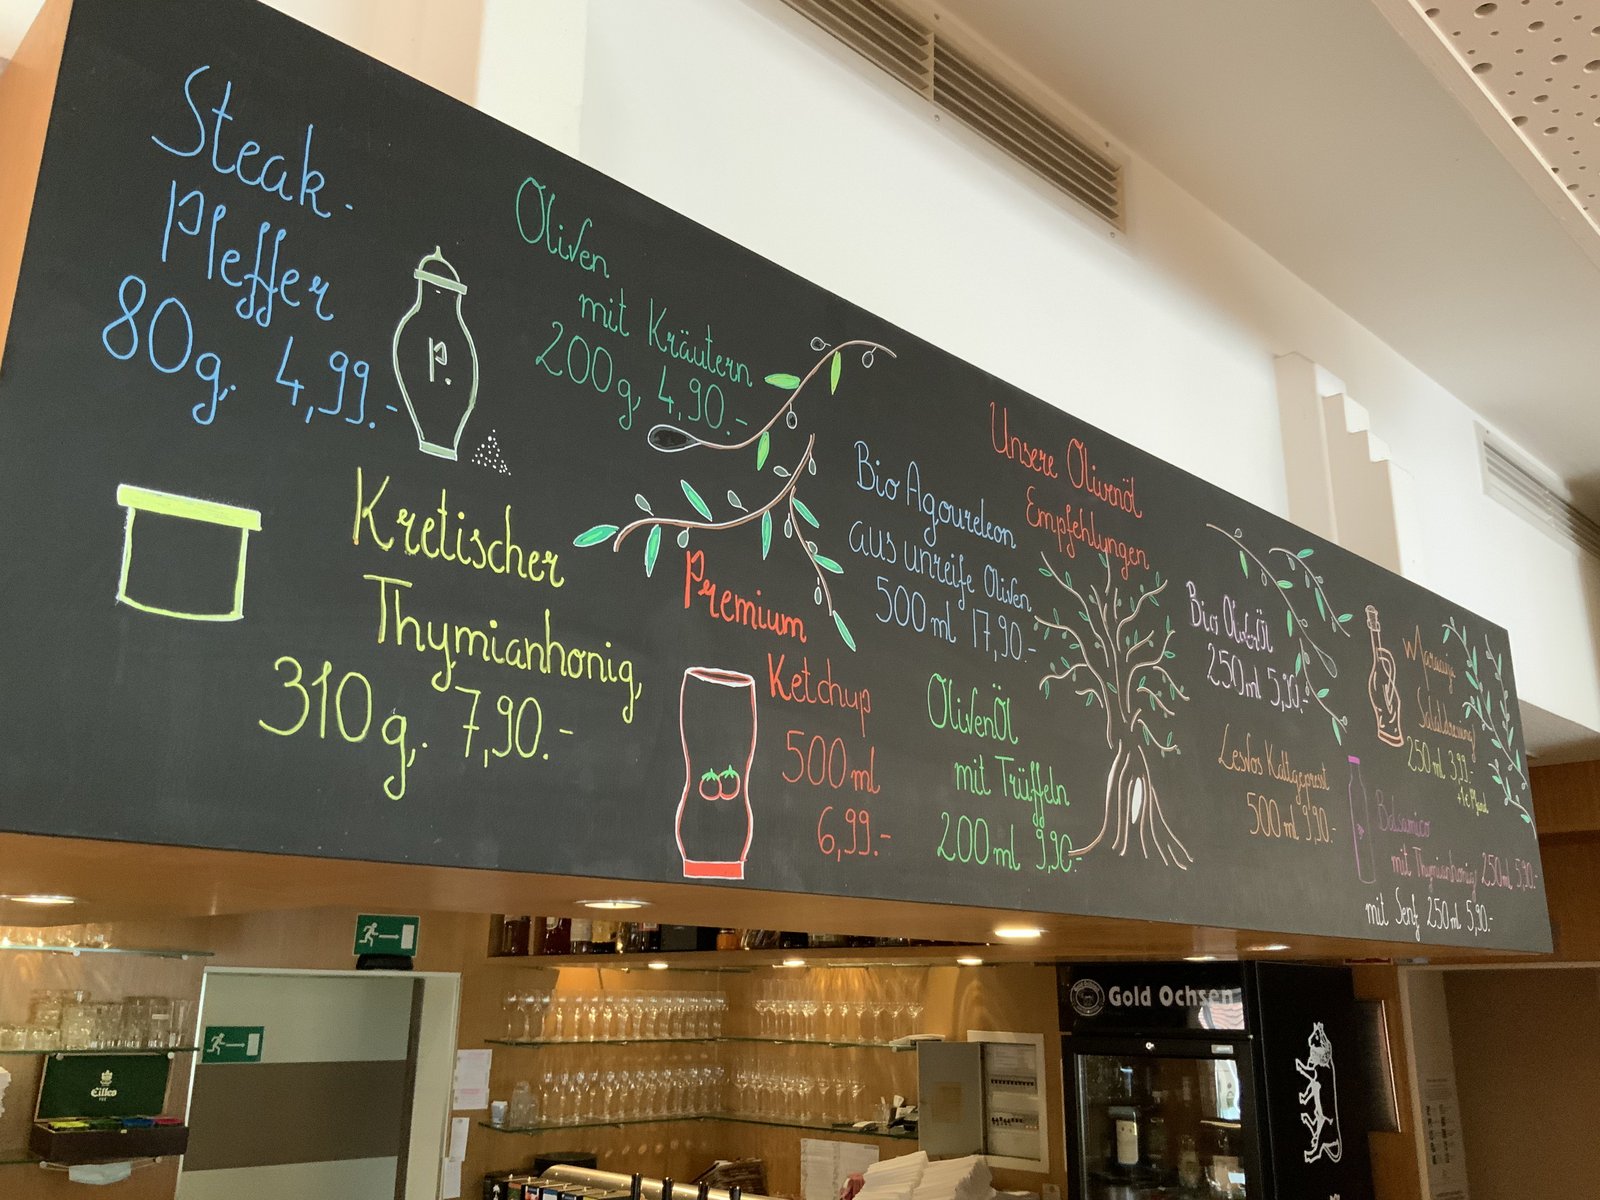 Steak-
Pfeffer
80g. 4,99.-
P.
Oliven
mit Kräutern
200g, 4,90.-
Kretischer
Thymianhonig,
310g,. 7,90.-
Premium
Ketchup
500 ml
6,99.-
Unsere Olivenöl
Empfehlungen
Bio Agoureleon
aus unreife Oliven
500 ml 17,90.-
OlivenÖl
mit Trüffeln
200 ml 9,90.-
Bio OlivenÖl
250 ml 5,90.-
Lesvos Kaltgepresst
500 ml 9,90.-
250 ml 3,99.-
Balsamico
mit Thymianhonig 250 ml 5,90.-
mit Senf 250 ml 5,90.-
Gold Ochsen
Eilles
TEE